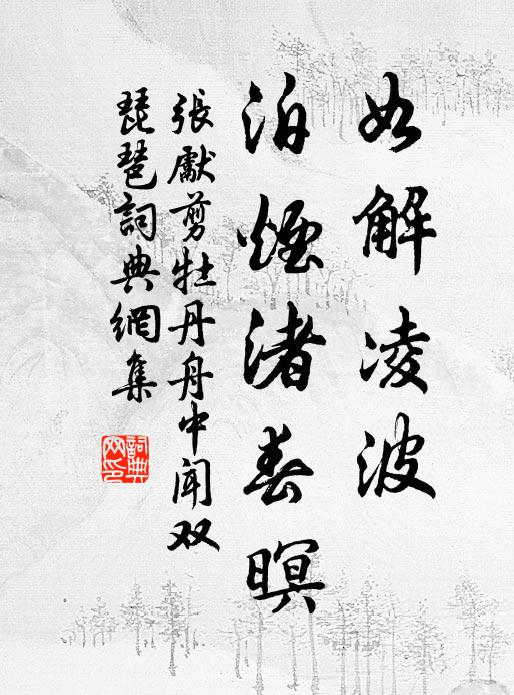 如解凌波
泊煙渚春暝
張獻剪牡丹舟中聞双
琵琶詞典網集
詞典网印